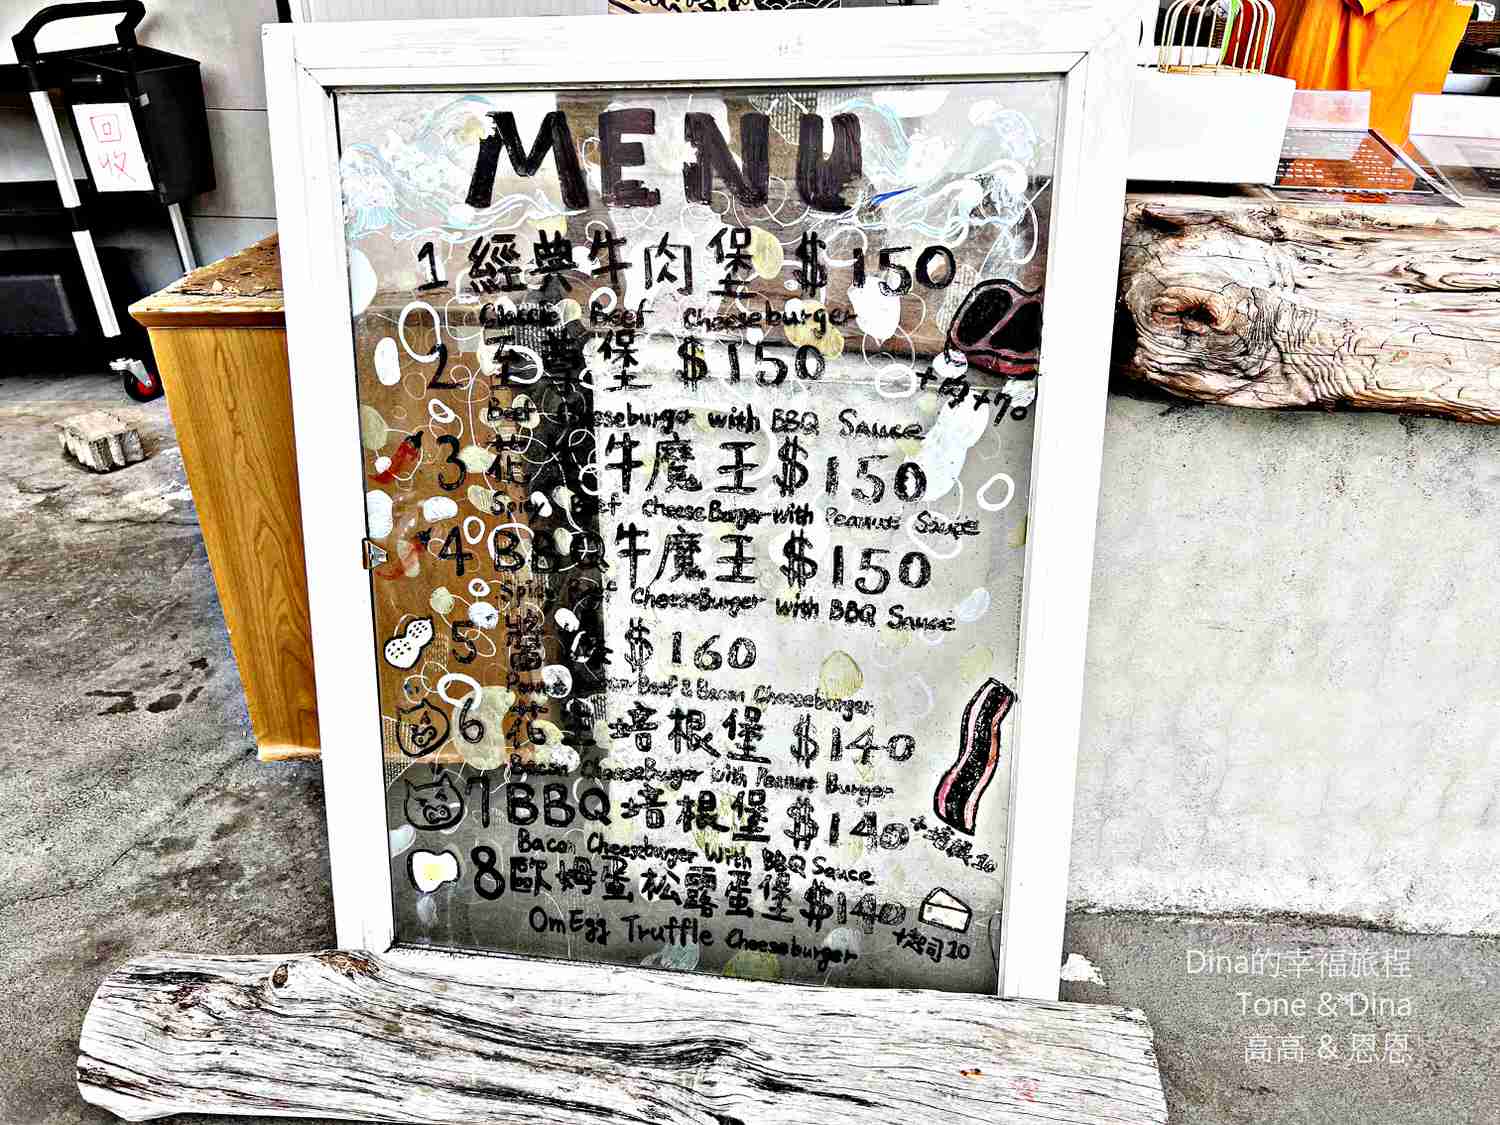 回
收
MENU
1 經典牛肉堡 $150
Classic Beef Cheeseburger
2 至尊堡 $150
+肉+70
Beef Cheeseburger with BBQ Sauce
3 花生牛魔王 $150
Spicy Beef CheeseBurger with Peanut Sauce
4 BBQ牛魔王 $150
Spicy Beef CheeseBurger with BBQ Sauce
5 $160
Beef & Bacon Cheeseburger
6 花生培根堡 $140
Bacon CheeseBurger with Peanut Burger
7 BBQ培根堡 $140
Bacon Cheeseburger With BBQ Sauce
8 歐姆蛋松露蛋堡 $140
+起司10
OmEgg Truffle Cheeseburger
Dina的幸福旅程
Tone & Dina
高高 & 恩恩